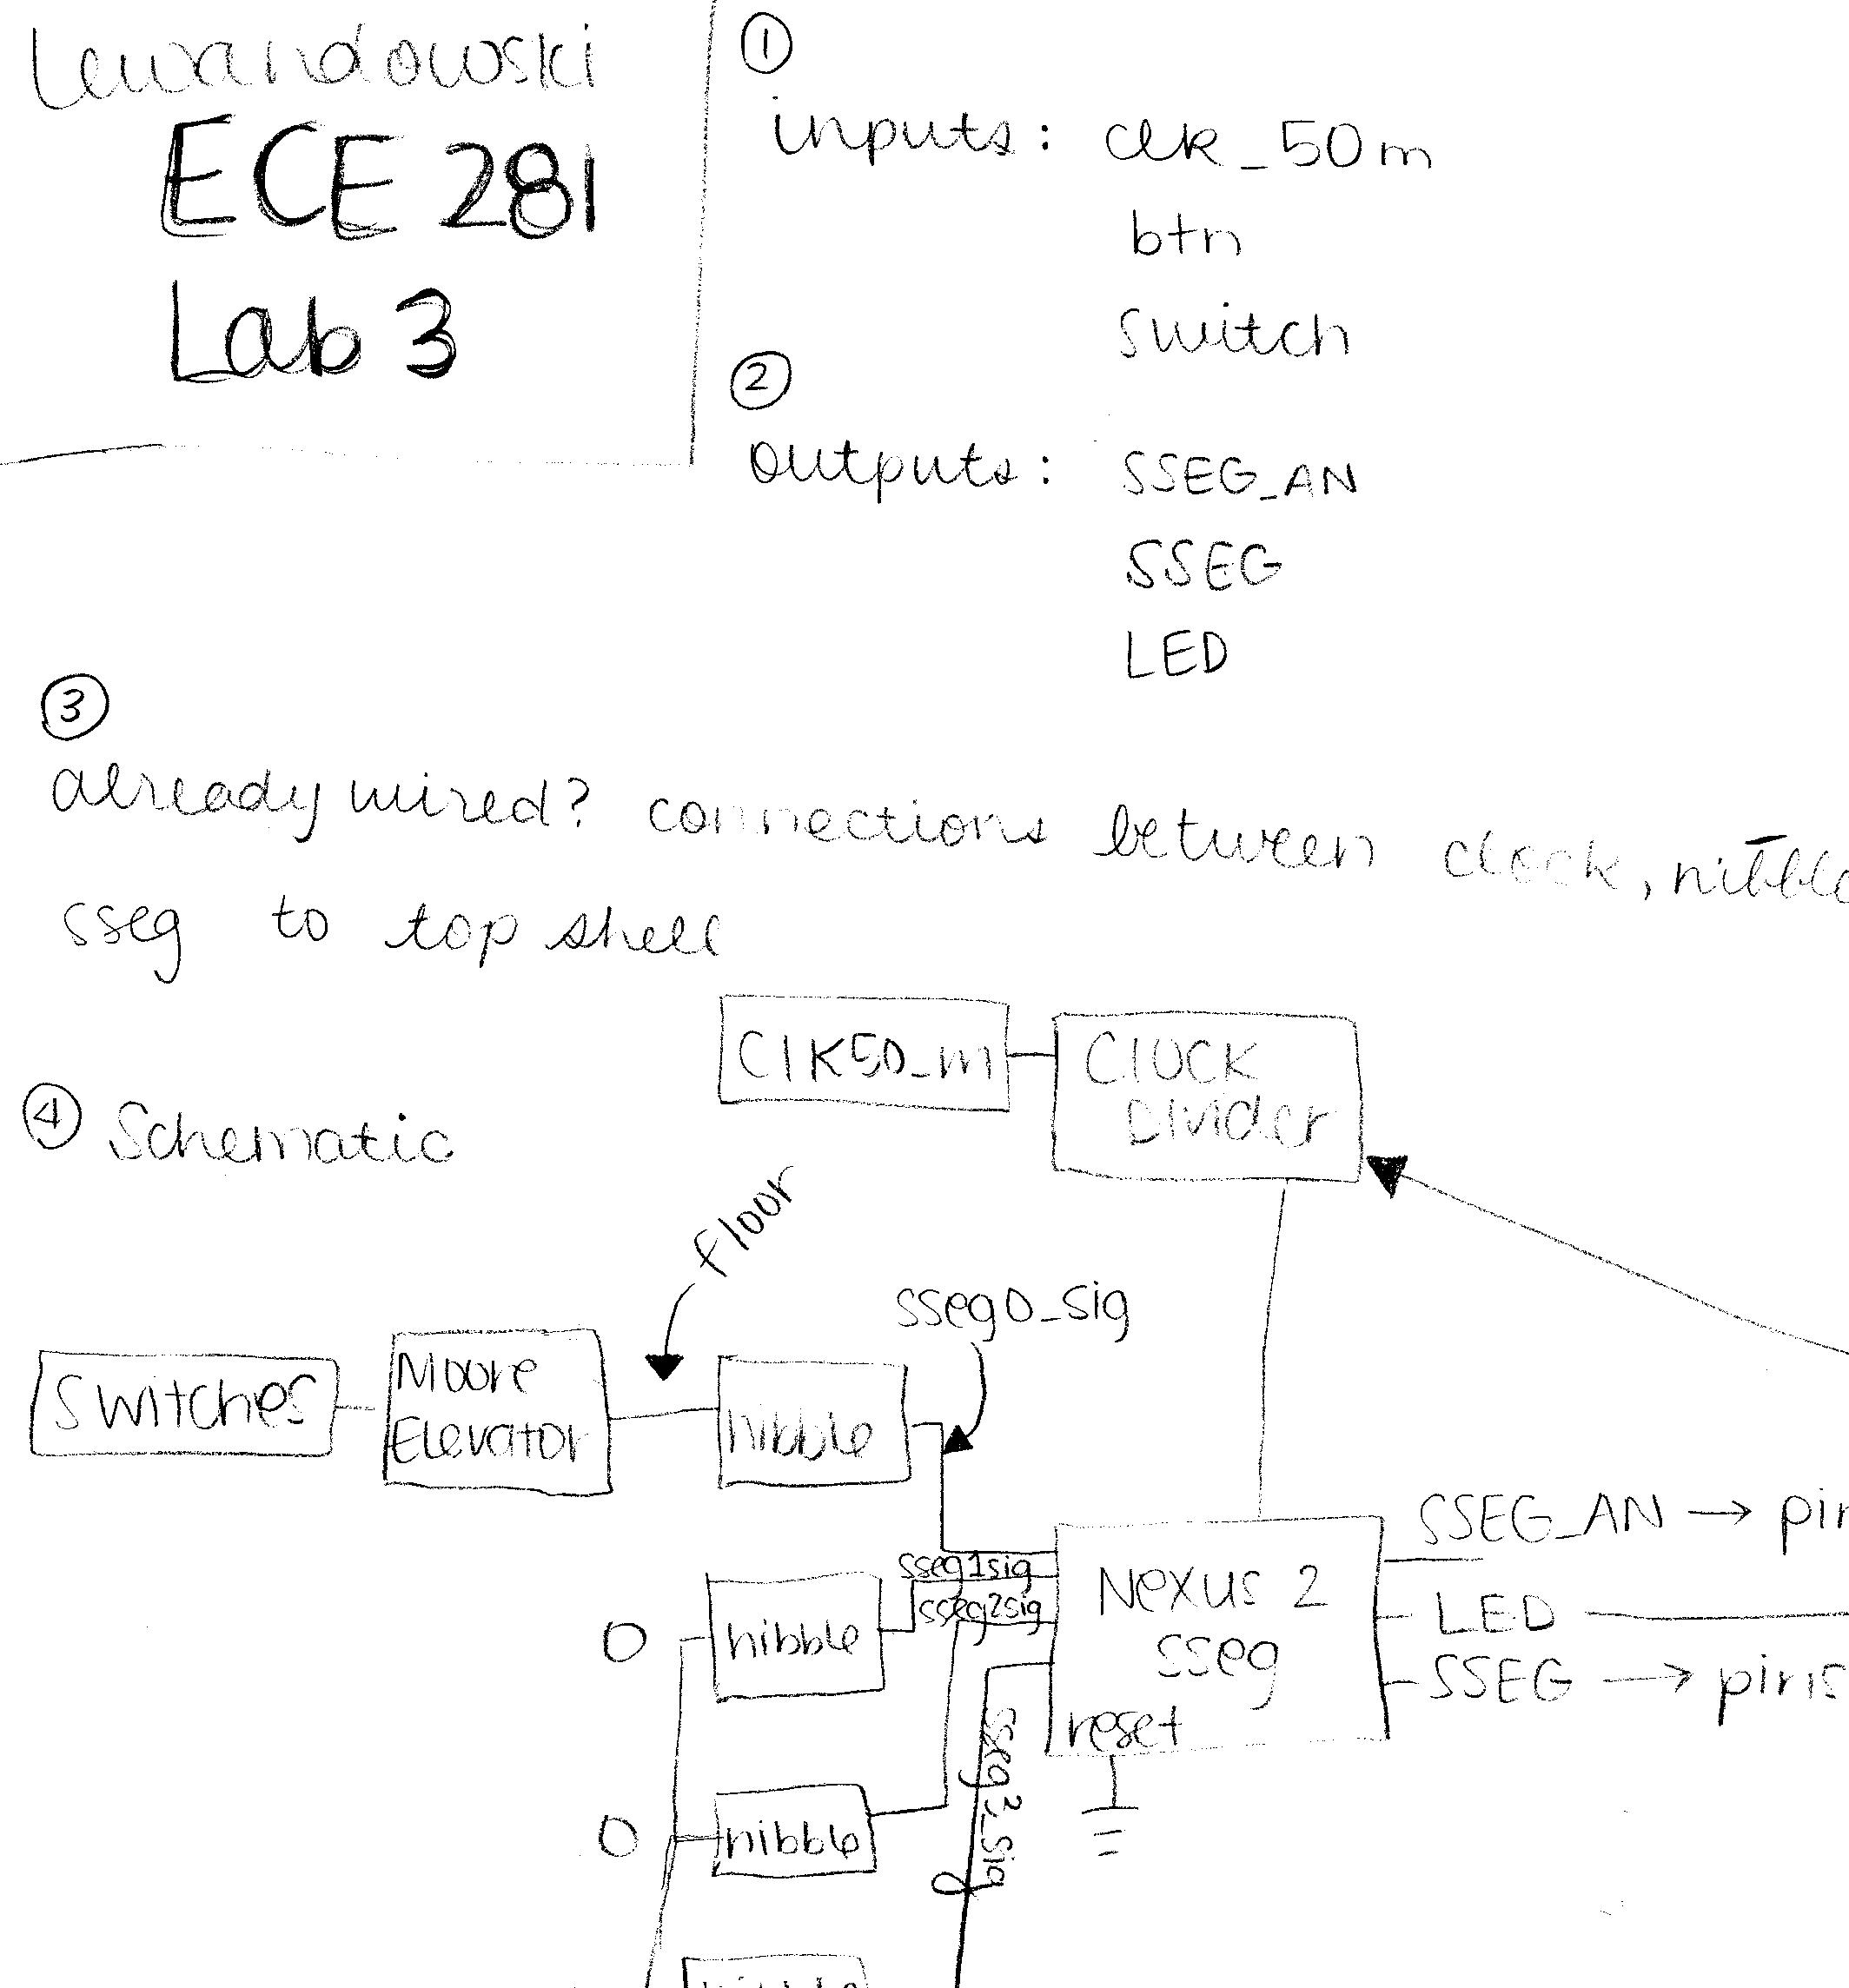 Lewandowski
ECE 281
Lab 3
①
inputs: clk_50m
btn
switch
②
outputs: SSEG_AN
SSEG
LED
③
already wired? connections between clock, nibble
sseg to top shell
④ Schematic
Clk50_m
Clock
Divider
floor
sseg0_sig
Switches
Moore
Elevator
nibble
sseg1sig
sseg2sig
sseg3_sig
Nexus 2
sseg
reset
SSEG_AN → pin
LED
SSEG → pins
0
nibble
0
nibble
nibble